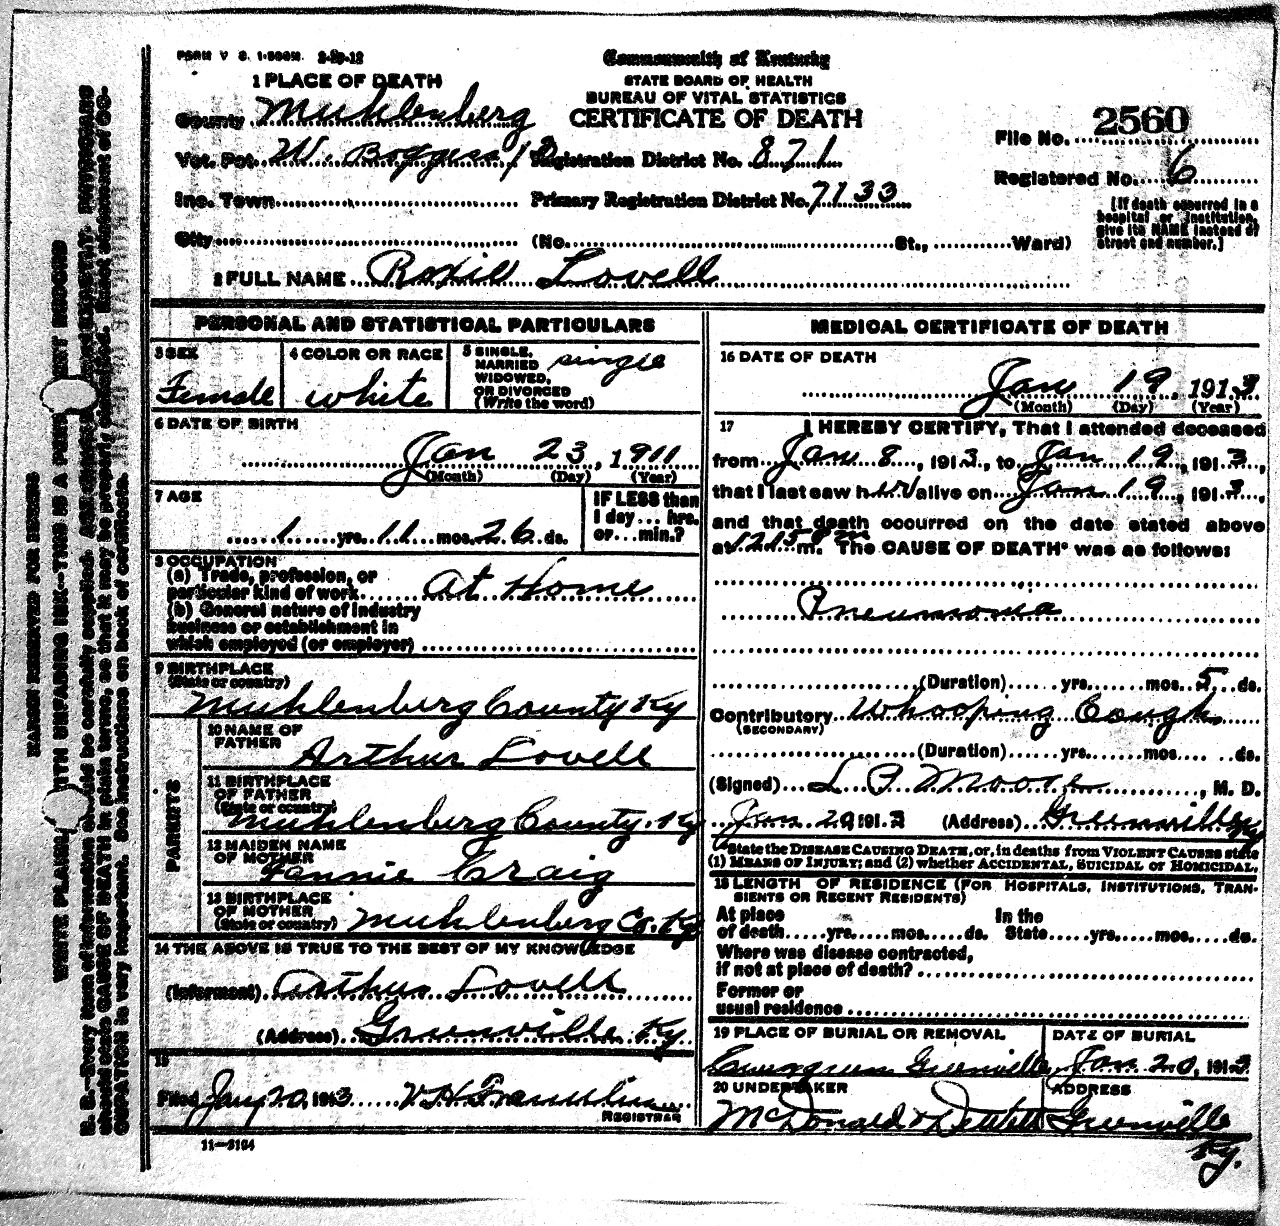 FORM V S. 1-500M. 2-29-12
Commonwealth of Kentucky
STATE BOARD OF HEALTH
BUREAU OF VITAL STATISTICS
CERTIFICATE OF DEATH
1 PLACE OF DEATH
County Muhlenberg
Vot. Pct. W. Boggess
Registration District No. 871
Inc. Town
Primary Registration District No. 7133
City (No. St., Ward)
File No. 2560
Registered No. 6
[If death occurred in a
hospital or institution,
give its NAME instead of
street and number.]
2 FULL NAME Lovell
PERSONAL AND STATISTICAL PARTICULARS
3 SEX
Female
4 COLOR OR RACE
white
5 SINGLE,
MARRIED
WIDOWED,
OR DIVORCED
(Write the word)
single
6 DATE OF BIRTH
Jan 23, 1911
(Month) (Day) (Year)
7 AGE
1 yrs. 11 mos. 26 ds.
IF LESS than
1 day ... hrs.
or ... min.?
8 OCCUPATION
(a) Trade, profession, or
particular kind of work At Home
(b) General nature of industry
business or establishment in
which employed (or employer)
9 BIRTHPLACE
(State or country)
Muhlenberg County Ky
PARENTS
10 NAME OF
FATHER
Arthur Lovell
11 BIRTHPLACE
OF FATHER
(State or country)
Muhlenberg County. Ky
12 MAIDEN NAME
OF MOTHER
Fannie Craig
13 BIRTHPLACE
OF MOTHER
(State or country) Muhlenberg Co. Ky
14 THE ABOVE IS TRUE TO THE BEST OF MY KNOWLEDGE
(Informant) Arthur Lovell
(Address) Greenville Ky
15
Filed Jan 20, 1913 V. H. Franklin
REGISTRAR
11-3184
MEDICAL CERTIFICATE OF DEATH
16 DATE OF DEATH
Jan 19, 1913
(Month) (Day) (Year)
17 I HEREBY CERTIFY, That I attended deceased
from Jan 8, 1913, to Jan 19, 1913,
that I last saw her alive on Jan 19, 1913,
and that death occurred on the date stated above
at 1215 m. The CAUSE OF DEATH* was as follows:
Pneumonia
(Duration) yrs. mos. 5 ds.
Contributory Whooping Cough
(SECONDARY)
(Duration) yrs. mos. ds.
(Signed) L P Moore, M. D.
Jan. 20, 1913 (Address) Greenville Ky
*State the DISEASE CAUSING DEATH, or, in deaths from VIOLENT CAUSES state
(1) MEANS OF INJURY; and (2) whether ACCIDENTAL, SUICIDAL OR HOMICIDAL.
18 LENGTH OF RESIDENCE (FOR HOSPITALS, INSTITUTIONS, TRAN-
SIENTS OR RECENT RESIDENTS)
At place In the
of death yrs. mos. ds. State yrs. mos. ds.
Where was disease contracted,
if not at place of death?
Former or
usual residence
19 PLACE OF BURIAL OR REMOVAL
Evergreen Greenville
DATE OF BURIAL
Jan. 20, 1913
20 UNDERTAKER
McDonald & DeWitt
ADDRESS
Greenville
Ky.
MARGIN RESERVED FOR BINDING
WRITE PLAINLY WITH UNFADING INK—THIS IS A RECORD
N. B.—Every item of information should be carefully supplied. EXACTLY. PHYSICIANS
should state CAUSE OF DEATH in plain terms, so that it may be properly classified. Exact statement of OC-
CUPATION is very important. See instructions on back of certificate.